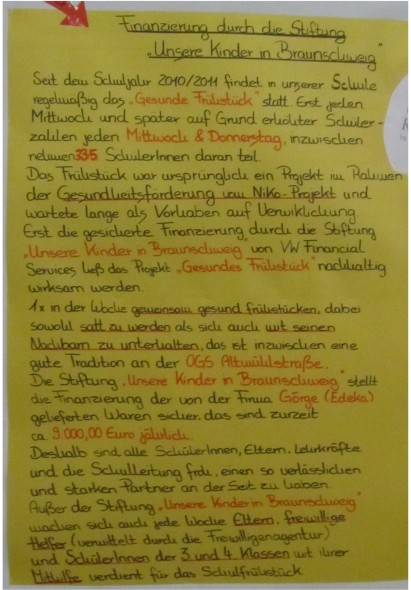 Finanzierung durch die Stiftung
„Unsere Kinder in Braunschweig"
Seit dem Schuljahr 2010/2011 findet in unserer Schule
regelmäßig das „Gesunde Frühstück" statt. Erst jeden
Mittwoch und später auf Grund erhöhter Schüler-
zahlen jeden Mittwoch & Donnerstag, inzwischen
nehmen 335 SchülerInnen daran teil.
Das Frühstück war ursprünglich ein Projekt im Rahmen
der Gesundheitsförderung vom NiKo-Projekt und
wartete lange als Vorhaben auf Verwirklichung.
Erst die gesicherte Finanzierung durch die Stiftung
„Unsere Kinder in Braunschweig" von VW Financial
Services ließ das Projekt „Gesundes Frühstück" nachhaltig
wirksam werden.
1x in der Woche gemeinsam gesund frühstücken, dabei
sowohl satt zu werden als sich auch mit seinen
Nachbarn zu unterhalten, das ist inzwischen eine
gute Tradition an der OGS Altmühlstraße.
Die Stiftung „Unsere Kinder in Braunschweig" stellt
die Finanzierung der von der Firma Görge (Edeka)
gelieferten Waren sicher, das sind zurzeit
ca. 9.000,00 Euro jährlich.
Deshalb sind alle SchülerInnen, Eltern, Lehrkräfte
und die Schulleitung froh, einen so verlässlichen
und starken Partner an der Seit zu haben.
Außer der Stiftung „Unsere Kinder in Braunschweig"
machen sich auch jede Woche Eltern, freiwillige
Helfer (vermittelt durch die Freiwilligenagentur)
und SchülerInnen der 3. und 4. Klassen mit ihrer
Mithilfe verdient für das Schulfrühstück.